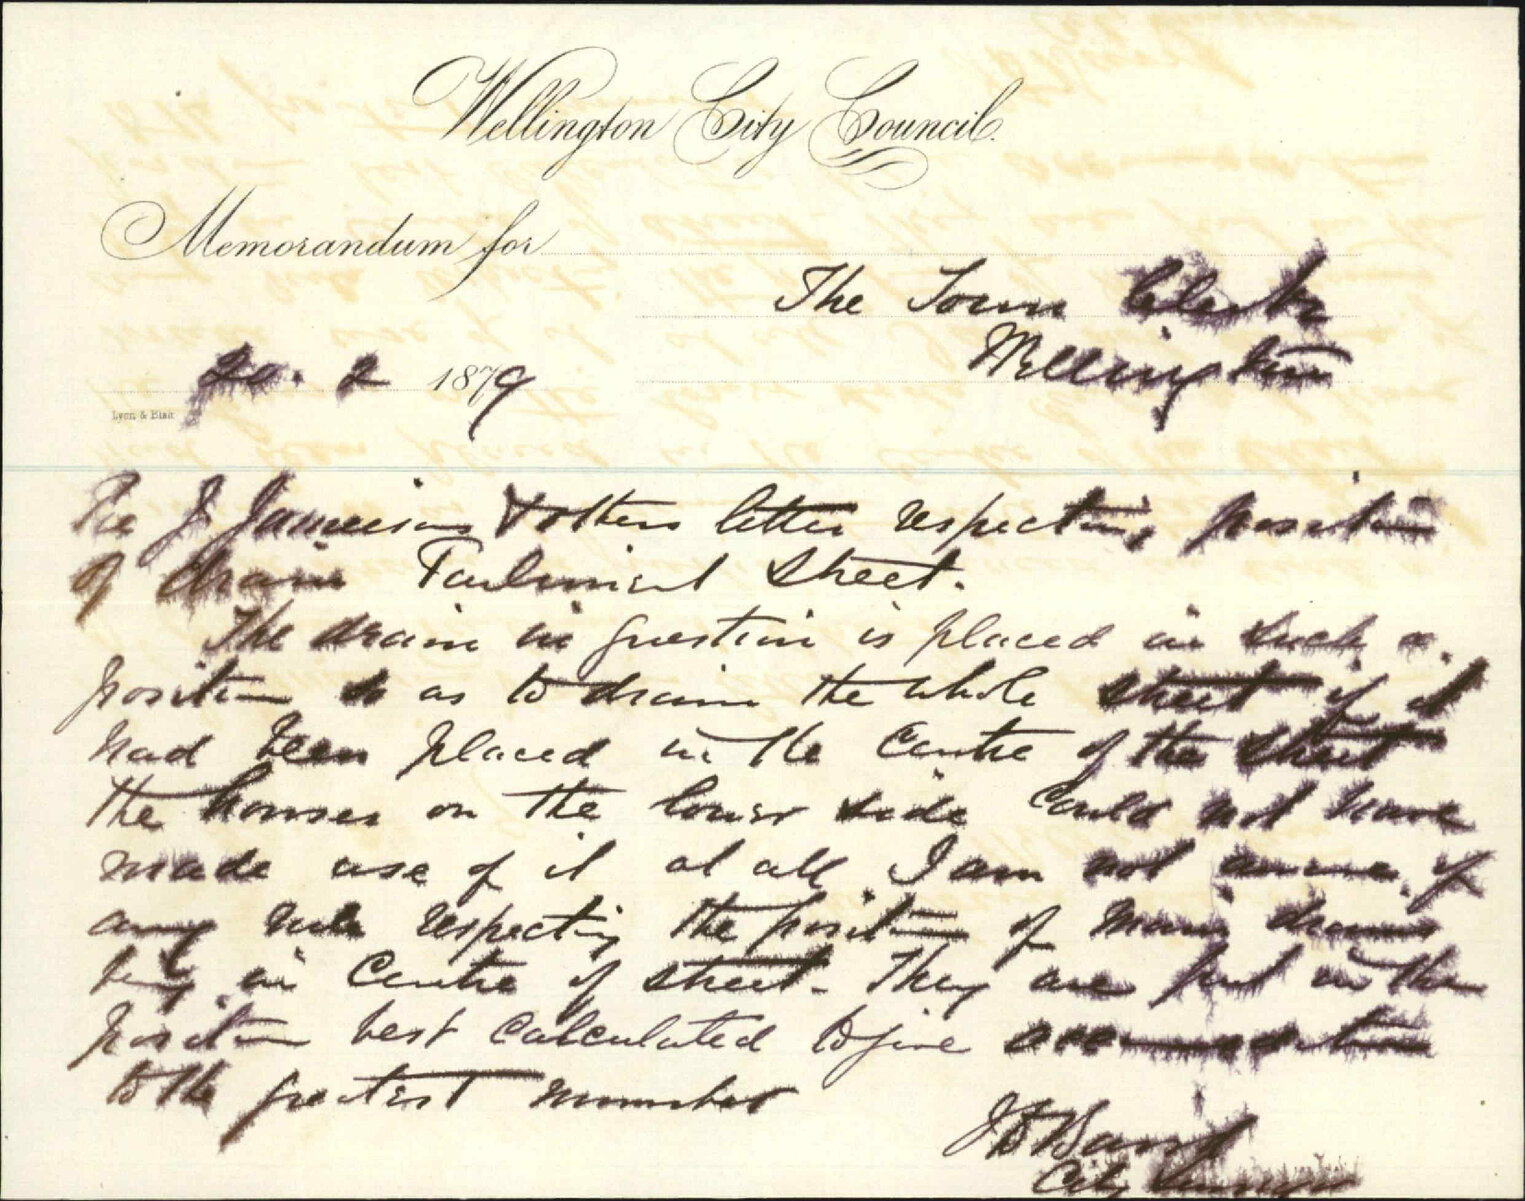 Wellington City Council.
Memorandum for
The Town Clerk
Wellington
20. 2 1879
Lyon & Blair
Re J Jamieson & others letter respecting position
of drain Parliment Street.
The drain in question is placed in such a
position so as to drain the whole street if it
had been placed in the Centre of the street
the houses on the lower side Could not have
made use of it at all. I am not aware of
any rule respecting the position of main drains
being in Centre of street. They are put in the
position best Calculated to give accomodation
to the greatest number
City Surveyor